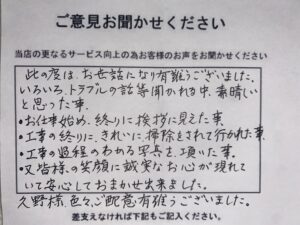 ご意見お聞かせください
当店の更なるサービス向上の為お客様のお声をお聞かせください
此の度は、お世話になり有難うございました。
いろいろ、トラブルの話等聞かれる中、素晴しい
と思った事、
・お仕事始め、終りに挨拶に見えた事
・工事の終りに、きれいに掃除をされて行かれた事、
・工事の過程のわかる写真を、頂いた事、
・又皆様の笑顔に誠実なお心が現れて
いて安心しておまかせ出来ました。
久野様、色々、ご配慮有難うございました。
差支えなければ下記もご記入ください。